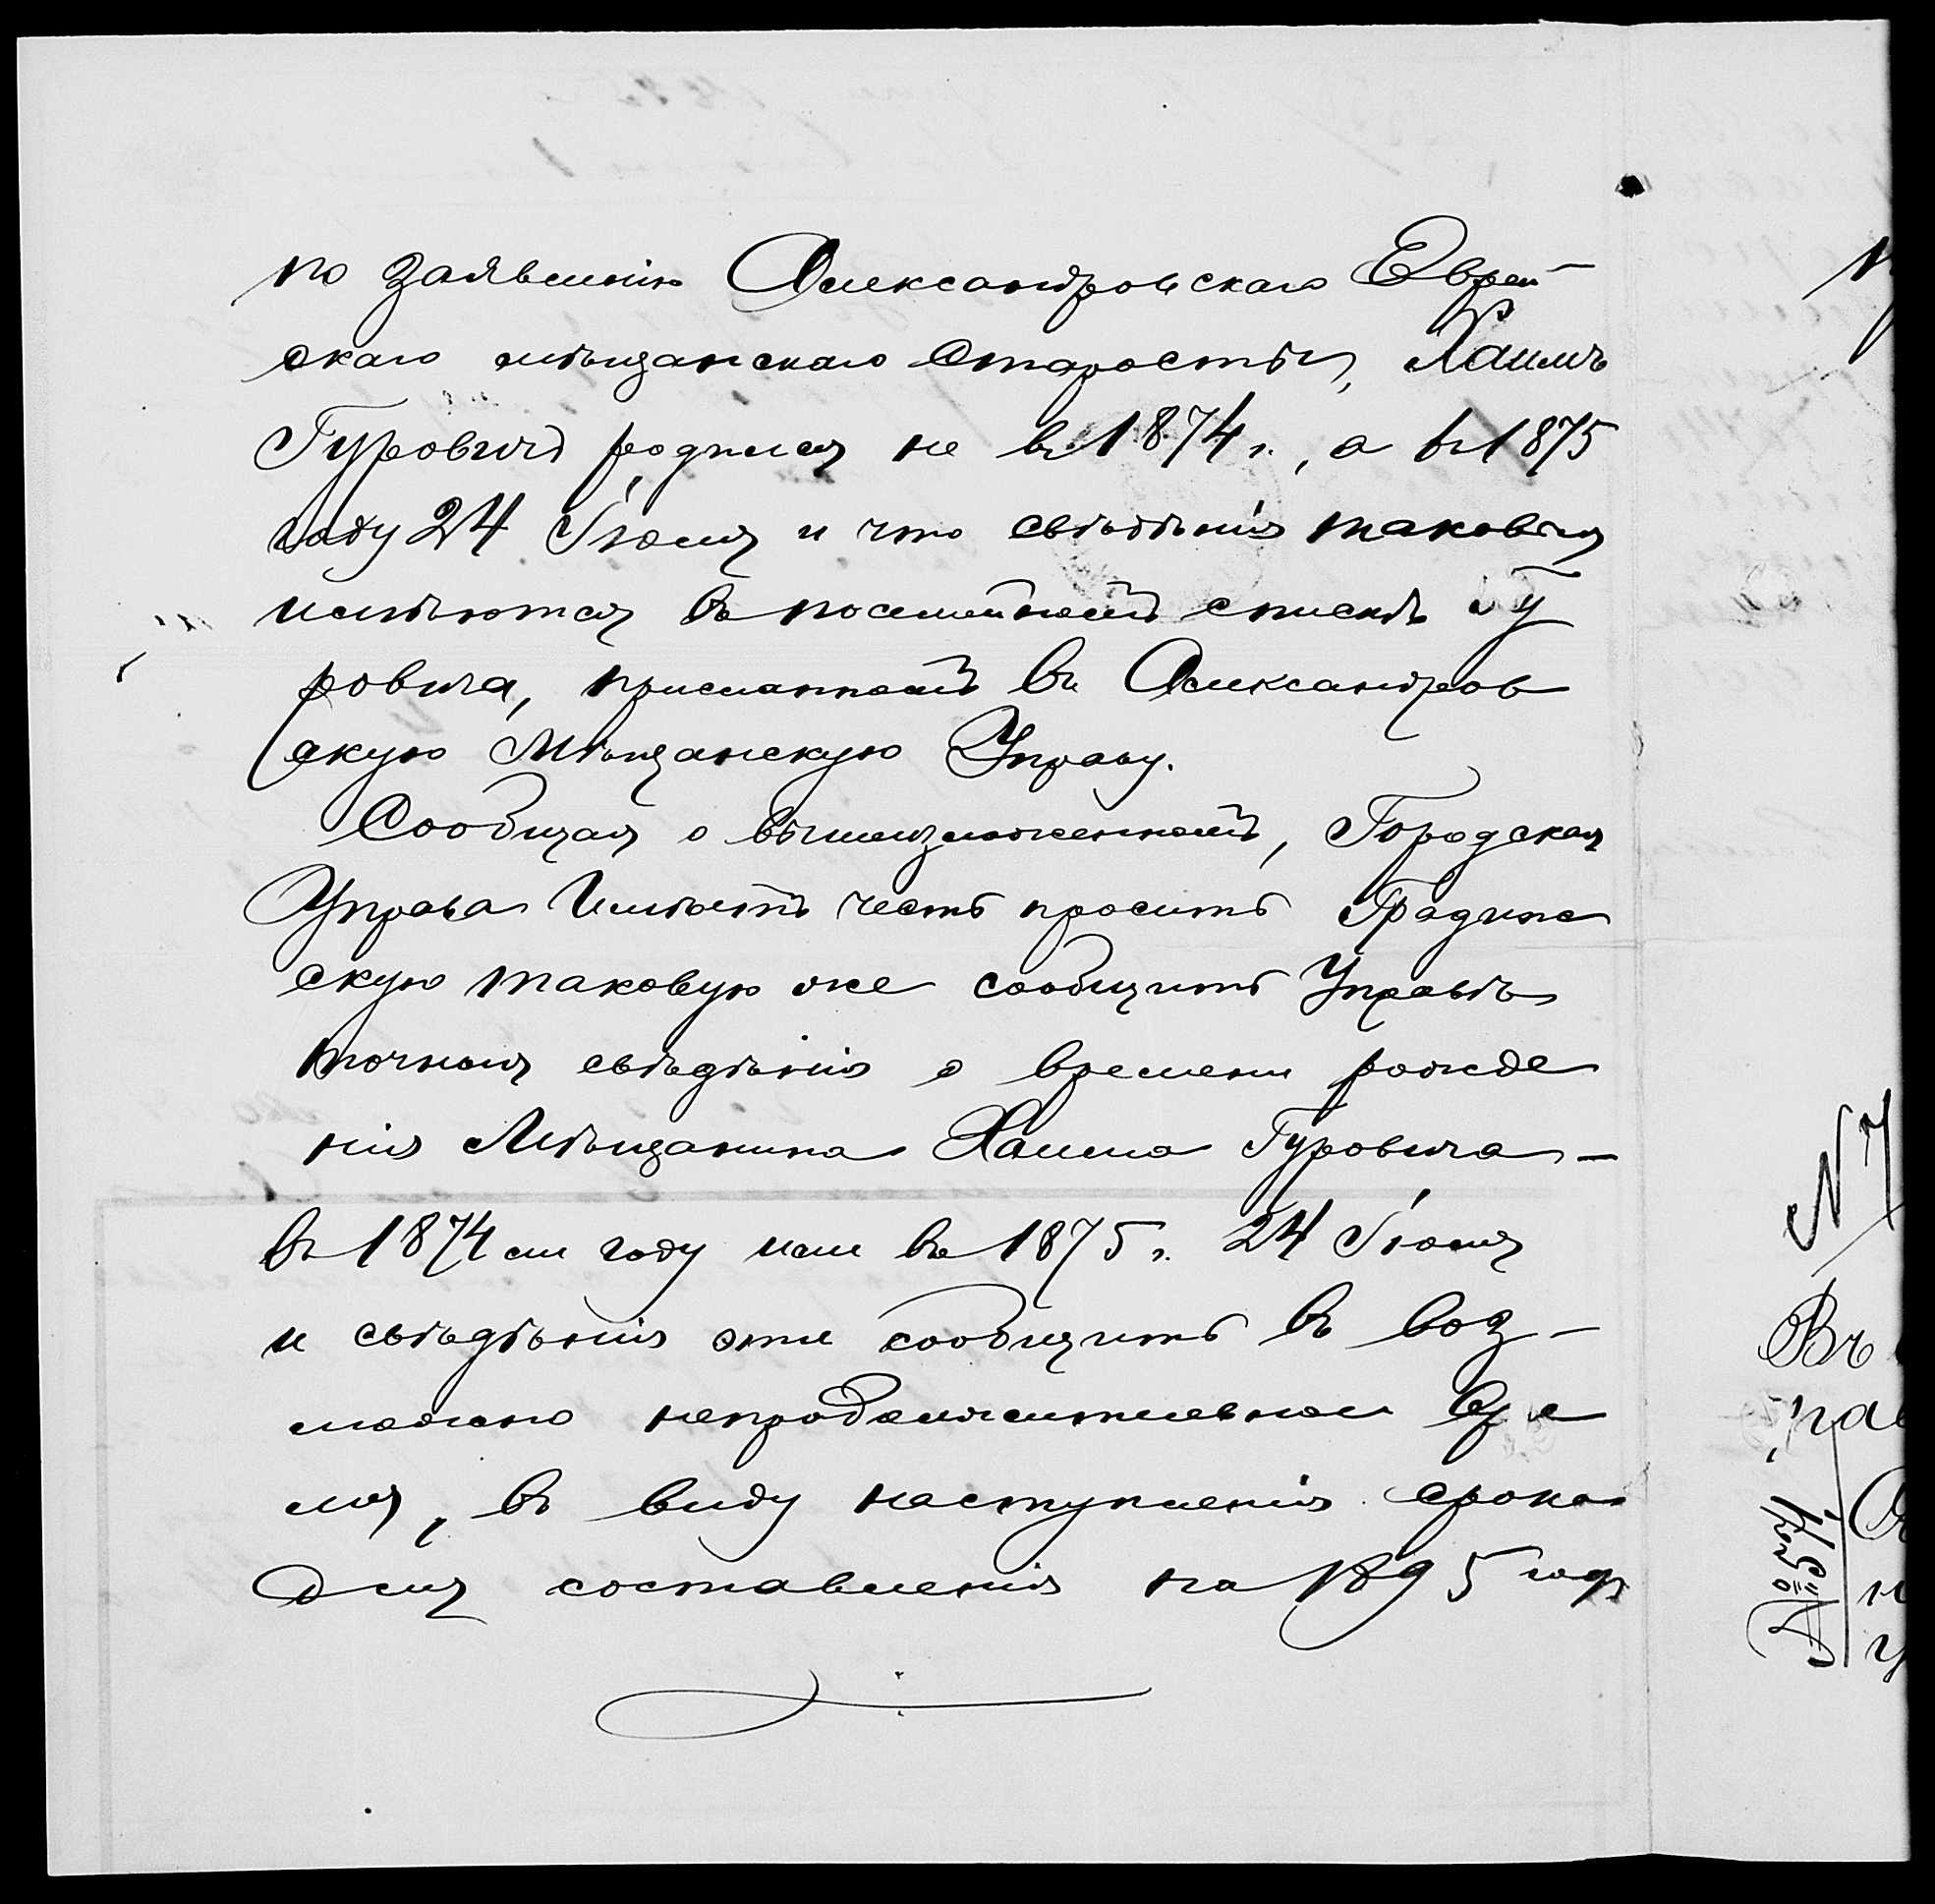 по заявленію Александровскаго Еврей-
скаго мѣщанскаго Старосты, Хаимъ
Гуровичъ родился не въ 1874 г., а въ 1875
году 24 Іюля и что свѣдѣнія таковыя
имѣются въ посемейномъ спискѣ Гу
ровича, присланномъ въ Александров
скую Мѣщанскую Управу.
Сообщая о вышеизложенномъ, Городская
Управа имѣетъ честь просить Градиж
скую таковую же сообщить Управѣ
точныя свѣдѣнія о времени рожде
нія Мѣщанина Хаима Гуровича –
въ 1874 ли году или въ 1875 г. 24 Іюля
и свѣдѣнія эти сообщить въ воз-
можно непродолжительном вре
мя, въ виду наступленія срока
для составленія на 1895 годъ
N 7
Въ